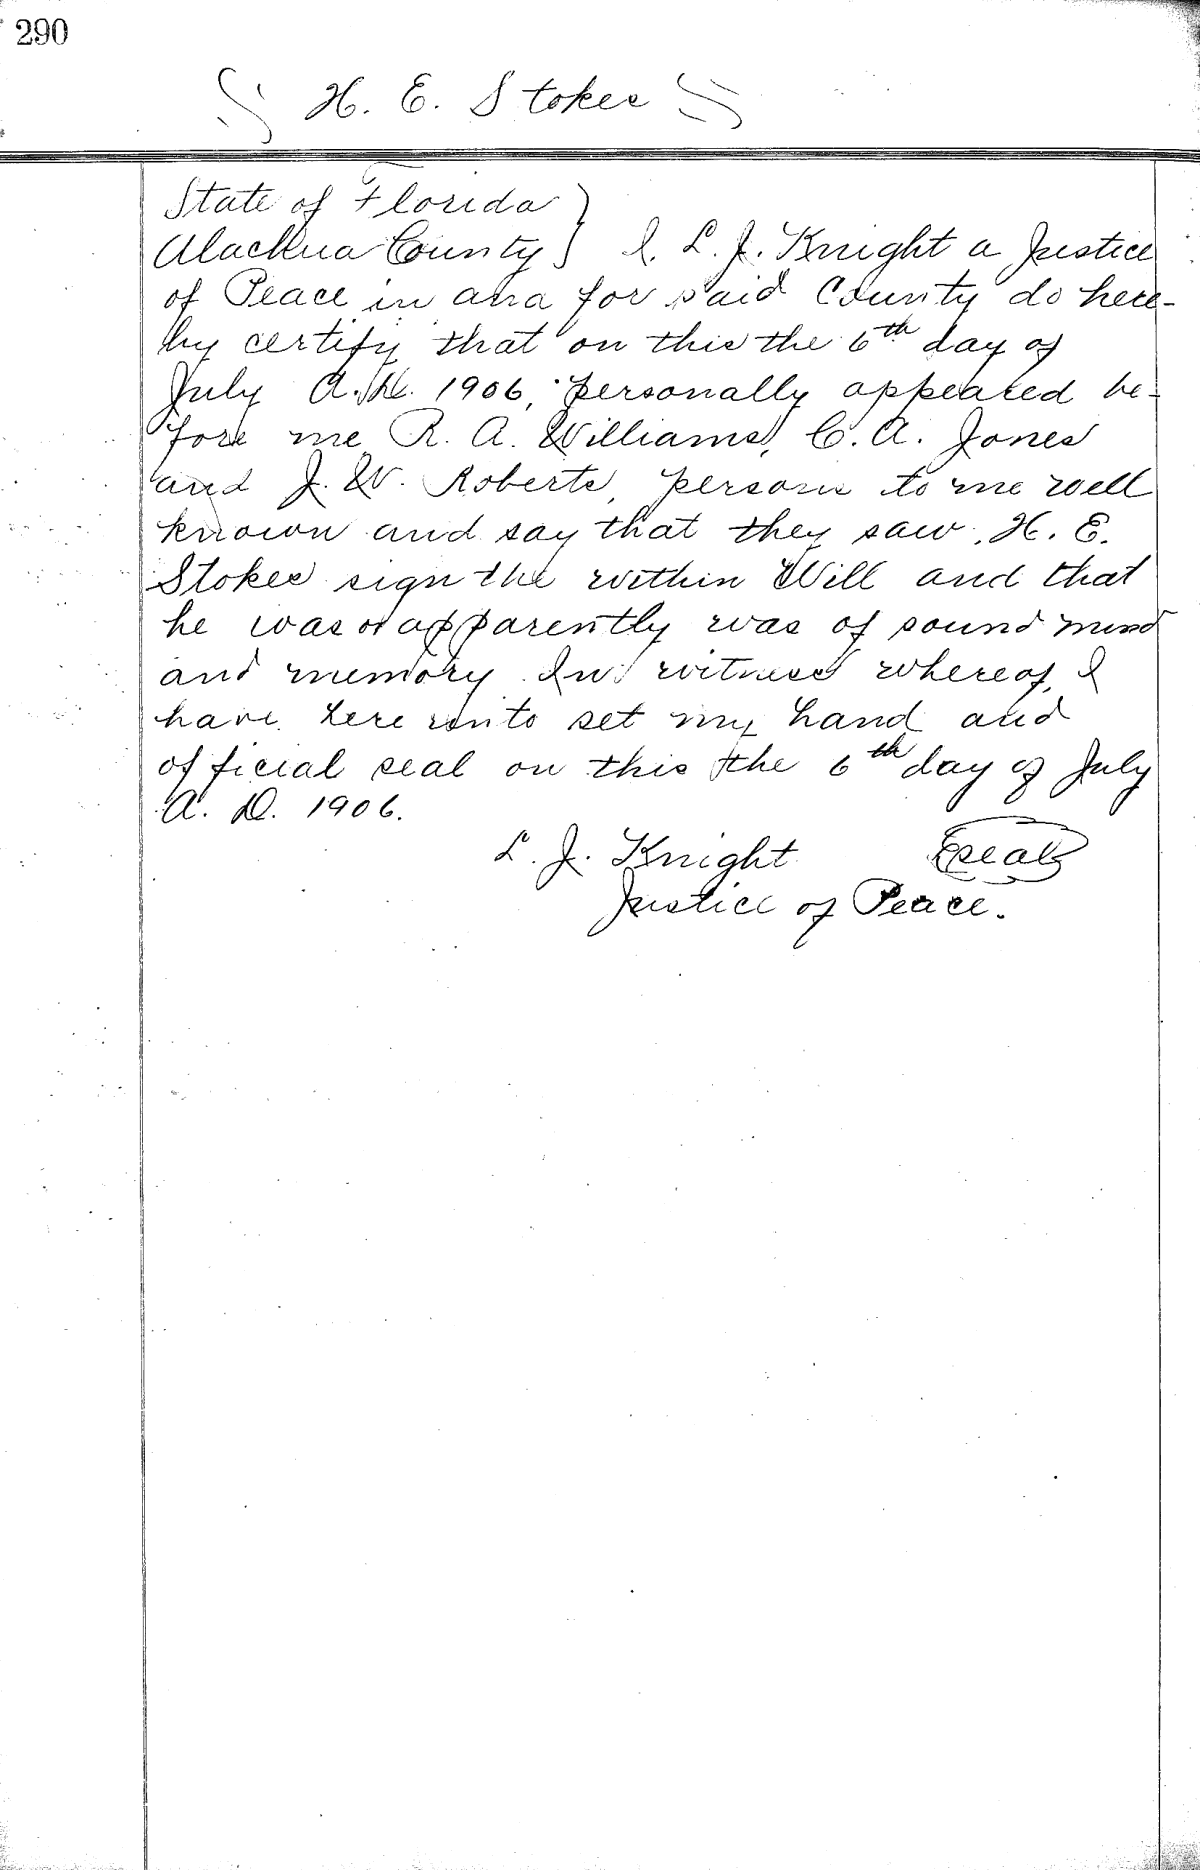 290
H. E. Stokes
State of Florida }
Alachua County } I, L. J. Knight a Justice
of Peace in and for said County do here-
by certify that on this the 6th day of
July A.D. 1906, personally appeared be-
fore me R. A. Williams, C. A. Jones
and J. W. Roberts, persons to me well
known and say that they saw H. E.
Stokes sign the within Will and that
he was or apparently was of sound mind
and memory. In witness whereof, I
have here unto set my hand and
official seal on this the 6th day of July
A. D. 1906.
L. J. Knight (Seal)
Justice of Peace.